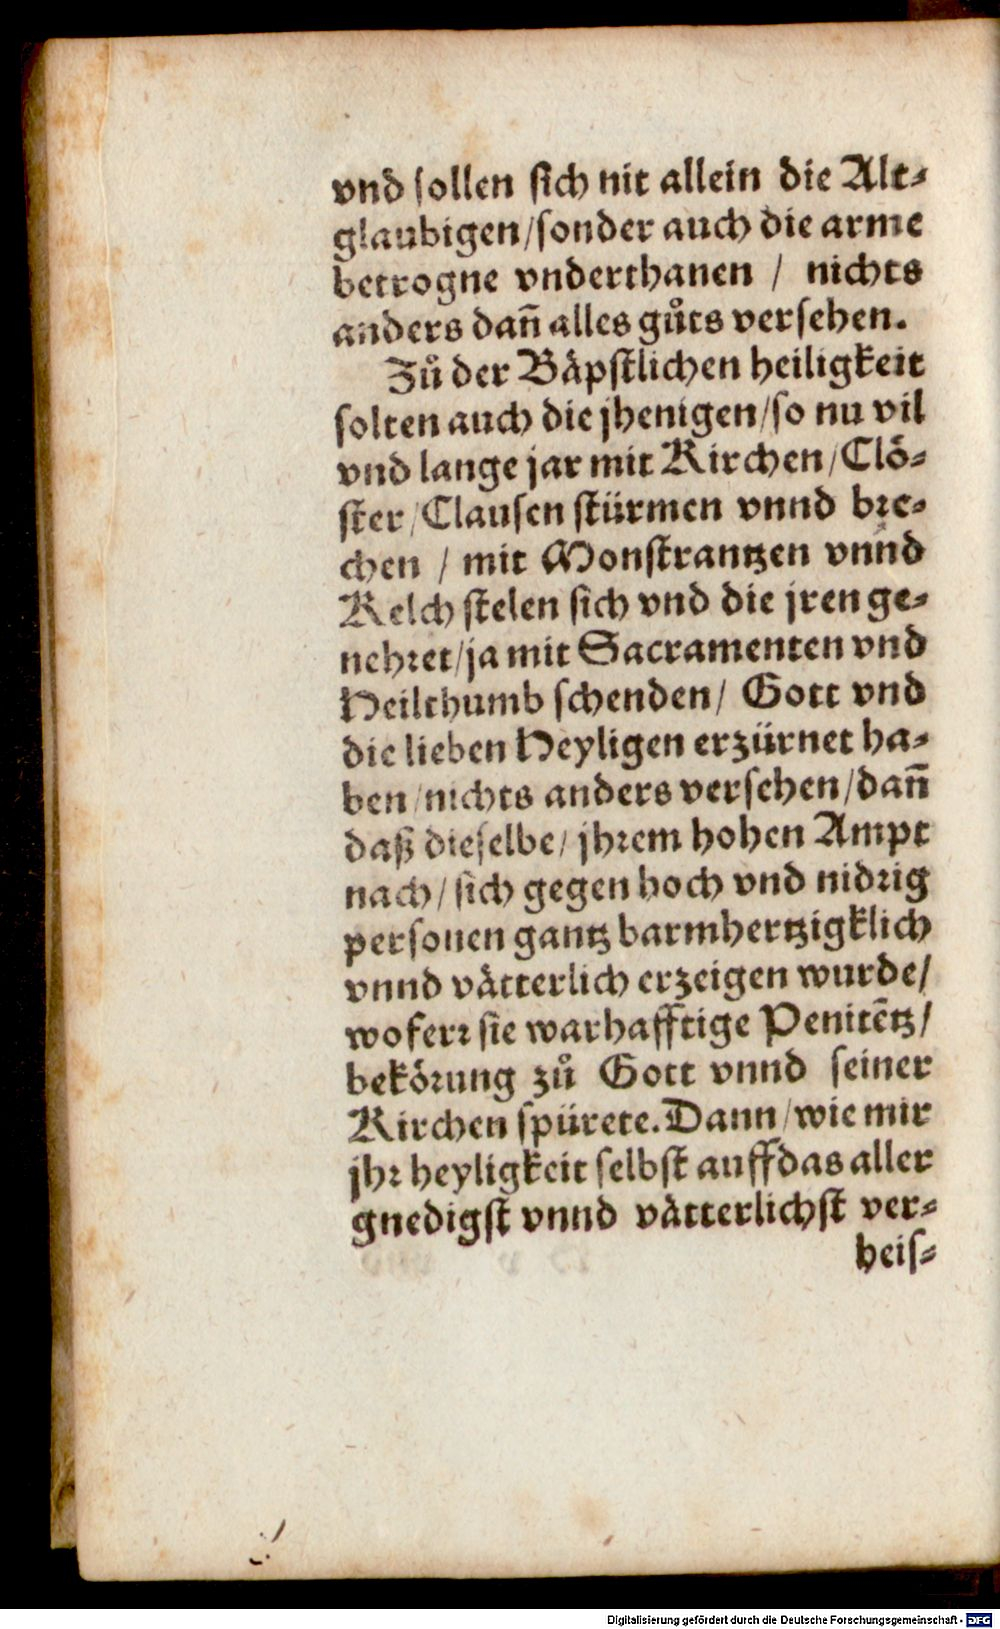 vnd sollen sich nit allein die Alt⸗
glaubigen/sonder auch die arme
betrogne vnderthanen / nichts
anders dañ alles gůts versehen.
Zů der Bäpstlichen heiligkeit
solten auch die jhenigen/so nu vil
vnd lange jar mit Kirchen/Clö⸗
ster/Clausen stürmen vnnd bre⸗
chen / mit Monstrantzen vnnd
Kelch stelen sich vnd die jren ge⸗
nehret/ja mit Sacramenten vnd
Heilthumb schenden/ Gott vnd
die lieben Heyligen erzürnet ha⸗
ben/nichts anders versehen/dañ
daß dieselbe/ jhrem hohen Ampt
nach/ sich gegen hoch vnd nidrig
personen gantz barmhertzigklich
vnnd vätterlich erzeigen wurde/
woferr sie warhafftige Penitētz/
bekörung zů Gott vnnd seiner
Kirchen spürete. Dann/wie mir
jhr heyligkeit selbst auffdas aller
gnedigst vnnd vätterlichst ver⸗
heis⸗
Digitalisierung gefördert durch die Deutsche Forschungsgemeinschaft - DFG